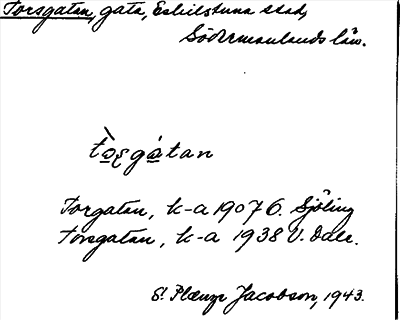 Torsgatan, gata, Eskilstuna stad,
Södermanlands län.
tòʂgátan
Torgatan, k-a 1907 G. Sjöling
Torsgatan, k-a 1938 V. Dale.
S. Plænge Jacobson, 1943.